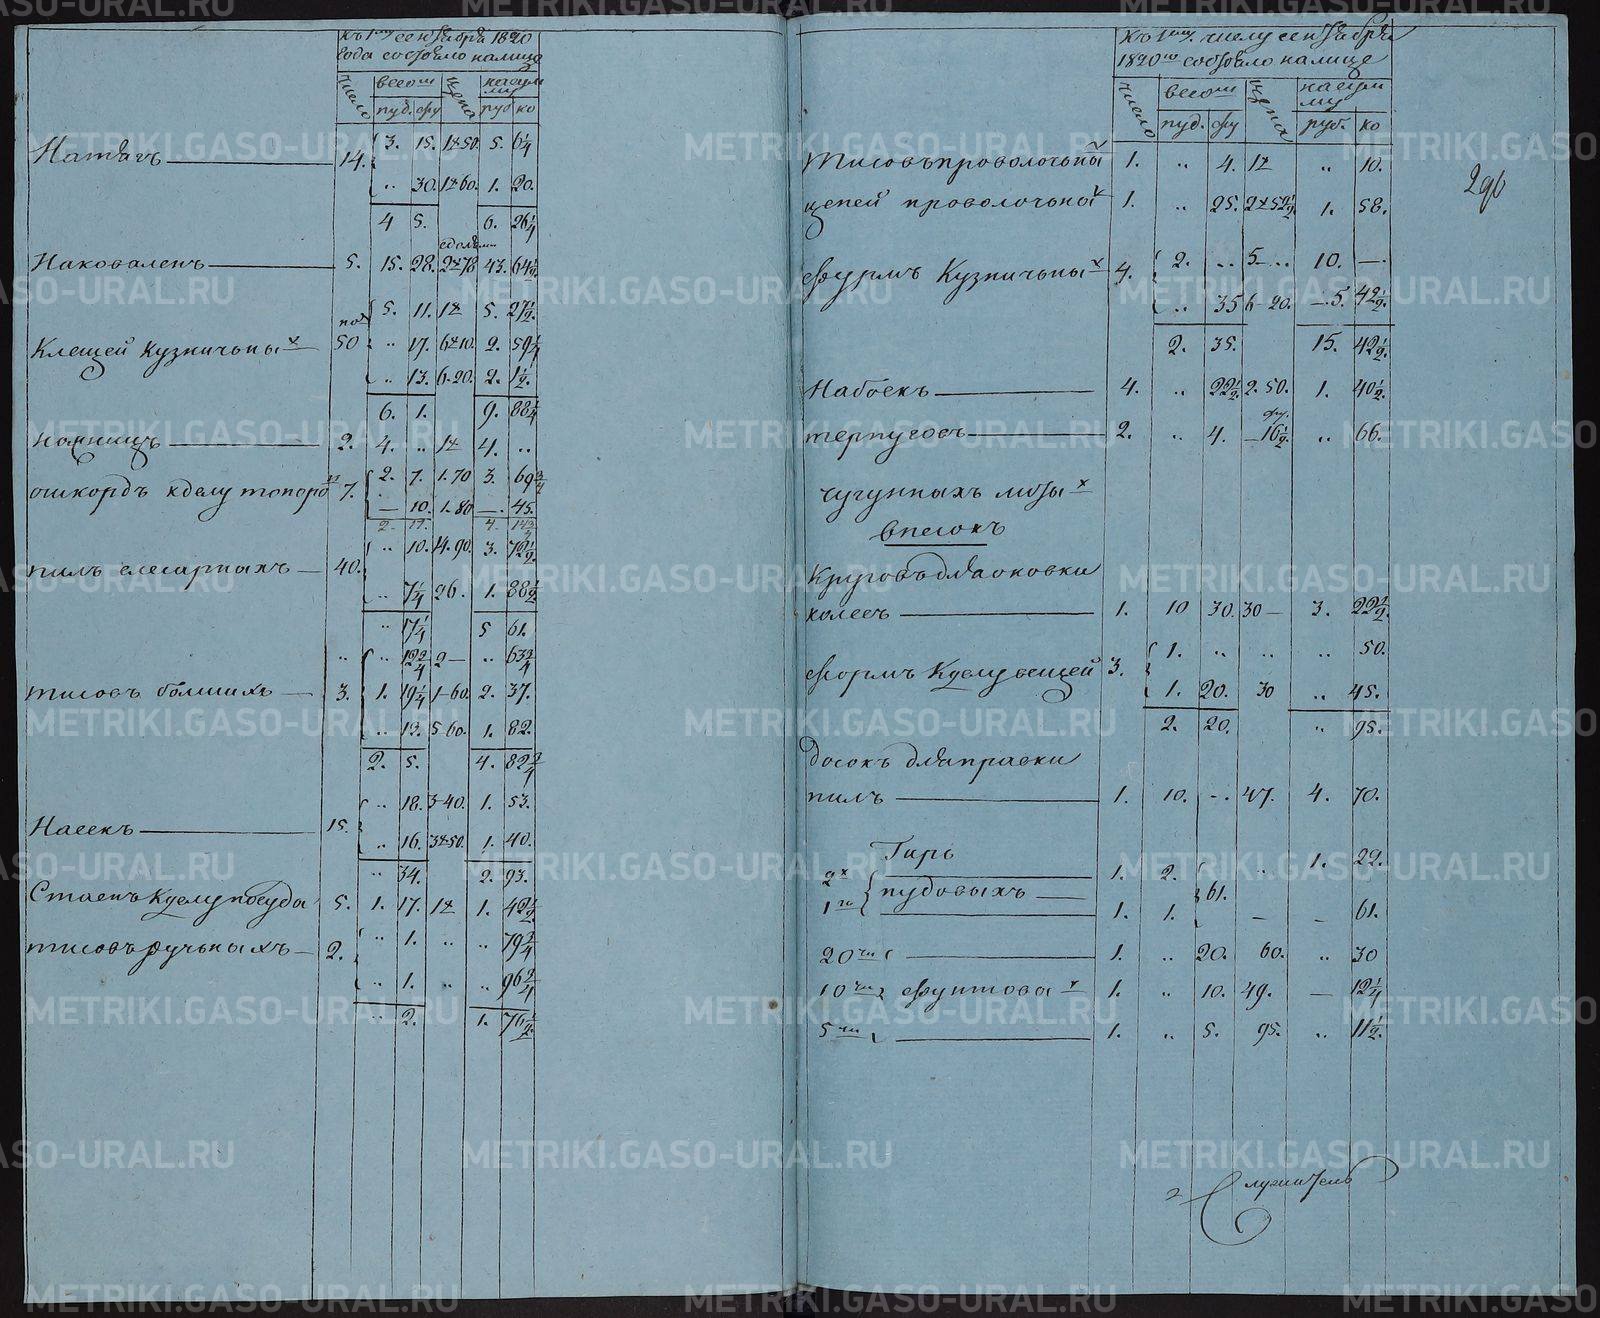 къ 1му сентября 1820
года состояло налице
число весом цена на сумму
пуд. фу руб ко
Натягъ 14. 3. 15. 1 50. 5. 6 1/4
" 30. 1 60. 1. 20.
4 5. 6. 26 1/4
Наковаленъ 5. 15. 28. 2 78 43. 64 1/2
5. 11. 1 5. 27 1/2
Клещей кузничьныхъ 50 " 17. 6 10. 2. 59 1/4
" 13. 6-20. 2. 1 1/2
6. 1. 9. 88 1/4
Ножницъ 2. 4. " 1 4. "
кделу топоровъ 7. 2. 7. 1.70 3. 69 3/4
— 10. 1.80 — 45.
2. 17. 4. 14 3/4
пилъ слесарныхъ 40. " 10. 14.90. 3. 72 1/2
" 7 1/4 26. 1. 88 1/2
" 17 1/4 5 61.
" " 12 3/4 2 — " 63 3/4
тисовъ большихъ 3. 1. 19 1/4 1-60. 2. 37.
" 13. 5-60. 1. 82.
2. 5. 4. 82 3/4
" 18. 3-40. 1. 53.
Насекъ 15. " 16. 3 50. 1. 40.
" 34. 2. 93.
кделу посуды 5. 1. 17. 1 1. 42 1/2
тисовъ ручьныхъ 2. " 1. " " 79 3/4
" 1. " " 96 3/4
" 2. 1. 76 1/2
къ 1му числу сентября
1820го состояло налице
число весом цена на сумму
пуд. фу руб. ко
296
тисовъ проволочьныхъ 1. " 4. 1 " 10.
цепей проволочьныхъ 1. " 25. 2 52 1/2 1. 58.
фурмъ Кузничьныхъ 4. 2. " 5 " 10. —
" 35 6-20. 5. 42 1/2
2. 35. 15. 42 1/2
Набоекъ 4. " 22 1/2 2.50. 1. 40 1/2
терпуговъ 2. " 4. 16 1/2 " 66.
чугунныхъ литыхъ
впесокъ
Круговъ для оковки
колесъ 1. 10 30. 30 — 3. 22 1/2
формъ кделу вещей 3. 1. " " " 50.
1. 20. 30 " 45.
2. 20. " 95.
досокъ для правки
пилъ 1. 10. " 47. 4. 70.
Гирь
2хъ 1. 2. " 1. 22.
пудовыхъ 61.
1го 1. 1. — — 61.
20ти 1. " 20. 60. " 30
10ти фунтовыхъ 1. " 10. 49. — 12 1/4
5ти 1. " 5. 95. " 11 1/2
служитель